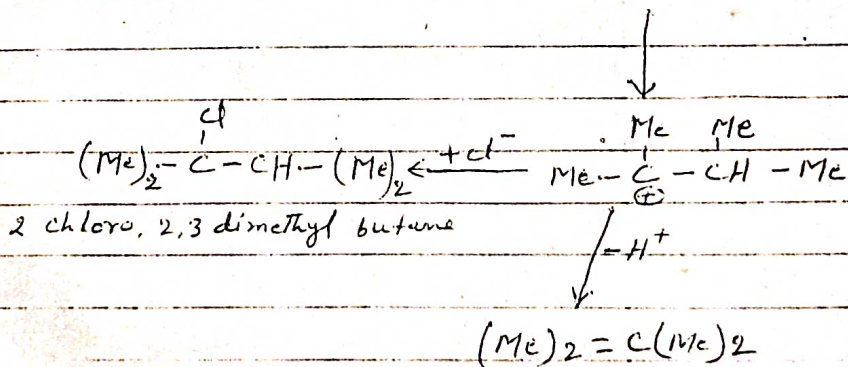 Cl Me Me
(Me)₂ - C - CH - (Me)₂ ← +Cl⁻ Me - C - CH - Me
⊕
2 chloro, 2,3 dimethyl butane
-H⁺
(Me)2 = C(Me)2